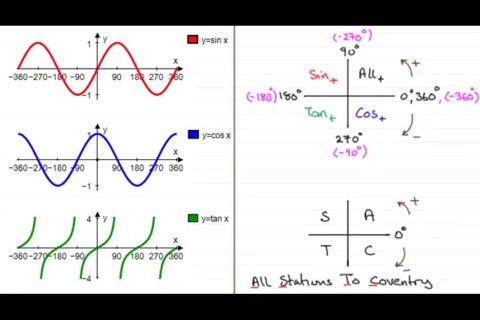 y
y=sin x
1
x
−360−270−180−90 90 180 270 360
−1
y
y=cos x
1
x
−360−270−180−90 90 180 270 360
−1
y
y=tan x
4
x
−360−270−180−90 90 180 270 360
−4
(-270°)
90°
+
Sin+ All+
(-180°) 180° 0°,360°,(-360°)
Tan+ Cos+
270°
−
(-90°)
+
S A
0°
T C
−
All Stations To Coventry